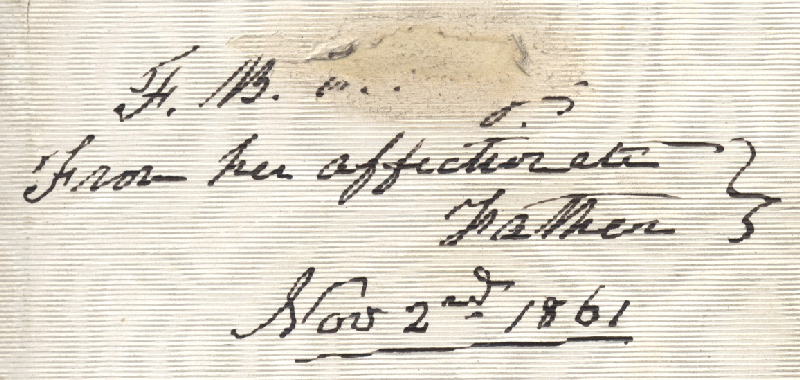 F. B.
From her affectionate
Father
Nov 2nd 1861